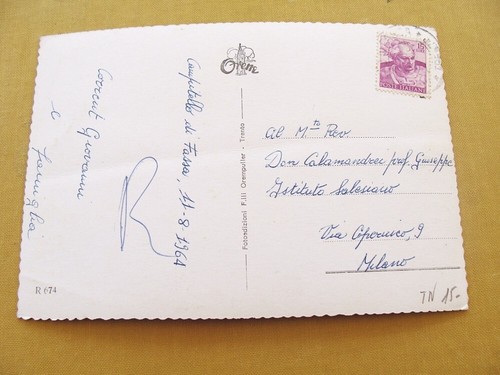 Campitello di Fassa, 11-8-1964
Corrent Giovanni
e famiglia
R 674
Orem
Fotoedizioni F.lli Orempuller - Trento
15
POSTE ITALIANE
Al M.to Rev
Don Calamandrei prof. Giuseppe
Istituto Salesiano
Via Copernico, 9
Milano
TN 15.-